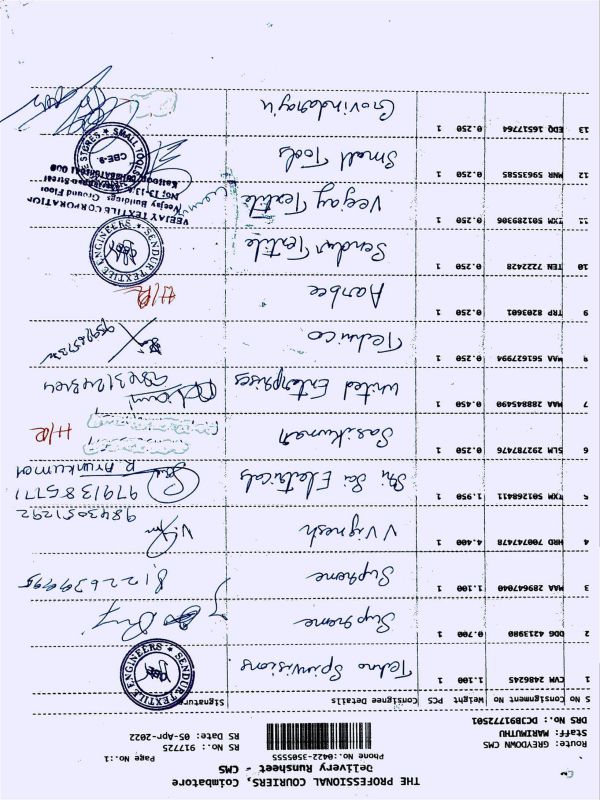 THE PROFESSIONAL COURIERS, Coimbatore
Delivery Runsheet - CMS
Phone No.:0422-3505555
Page No.:1
Route: GREYDOWN CMS
Staff: MARIMUTHU
DRS No.: DCJB91772501
RS No.: 917725
RS Date: 05-Apr-2022
S No Consignment No Weight PCS Consignee Details Signature
1 CVM 2486245 1.100 1 Techno Spinvisions
SENDUR TEXTILE ENGINEERS
2 DDG 4213980 0.700 1 Supreme
3 MAA 289647040 1.100 1 Supreme 8122639995
4 HRD 700747478 4.400 1 V Vignesh
9843051292
5 TXM 501268411 1.950 1 Sri Sai Electricals 9791385771
R Arunkumar
6 SLM 292787476 0.250 1 Sasikumar H/R
7 MAA 288845490 0.450 1 United Enterprises 9843124844
8 MAA 561627994 0.250 1 Technico
9 TRP 8203601 0.250 1 Aarbee H/R
10 TEN 7222428 0.250 1 Sendur Textile
SENDUR TEXTILE ENGINEERS
11 TXM 501289306 0.250 1 Veejay Textile
VEEJAY TEXTILE CORPORATION
Veejay Buildings Ground Floor
12 MNN 59635585 0.250 1 Small Tools
SMALL TOOLS STORES
CBE-9
13 EDQ 16517764 0.250 1 Govindaraju